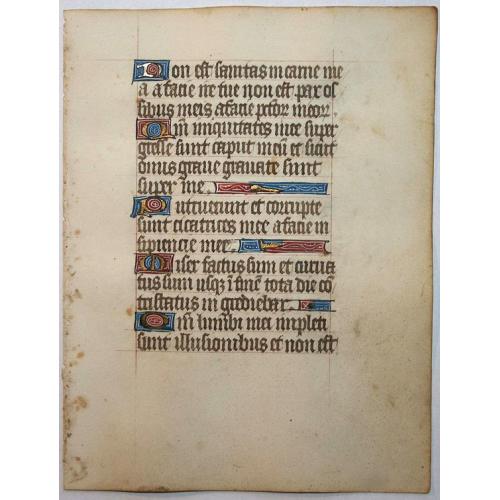 Non est sanitas in carne me
a a facie ire tue non est pax os
sibus meis a facie pctor meor
Qm iniquitates mee super
gresse sunt caput meū et sicut
onus graue grauate sunt
super me.
Putruerunt et corrupte
sunt cicatrices mee a facie in
sipiencie mee.
Miser factus sum et curua
tus sum usqȝ ī finē tota die cō
tristatus in grediebar.
Qm lumbi mei impleti
sunt illusionibus et non est